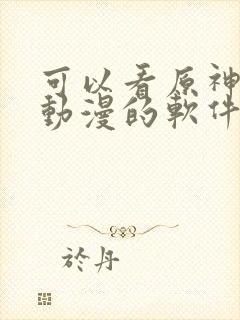 可以看原神
動漫的軟件
於丹